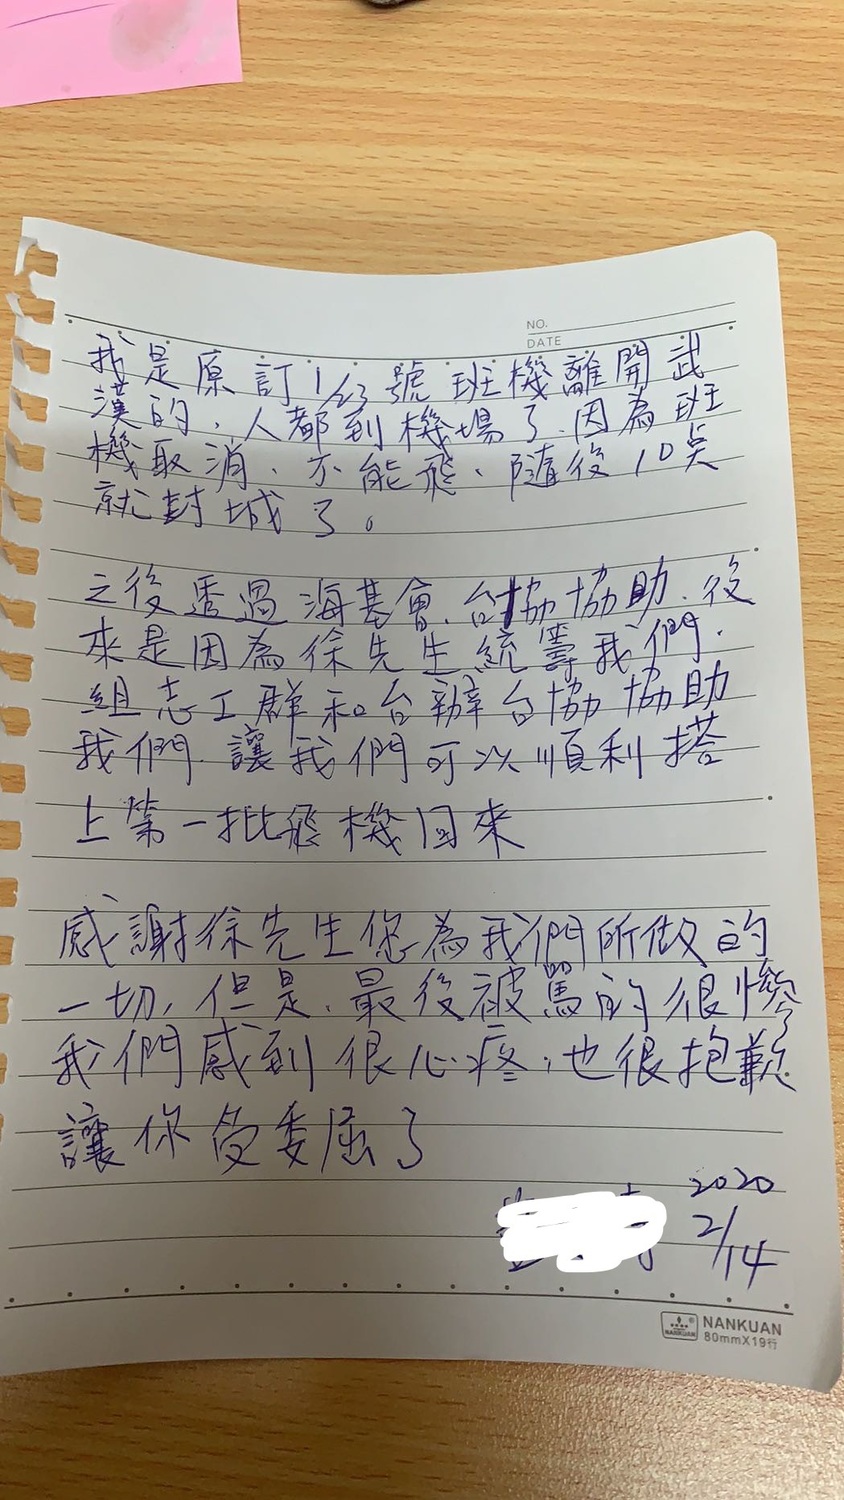 NO.
DATE
我是原訂1/23號班機離開武
漢的，人都到機場了，因為班
機取消、不能飛、隨後10點
就封城了。
之後透過海基會、台協協助、後
來是因為徐先生統籌我們，
組志工群和台辦台協協助
我們，讓我們可以順利搭
上第一批飛機回來
感謝徐先生您為我們所做的
一切，但是，最後被罵的很慘
我們感到很心疼，也很抱歉
讓你受委屈了
2020
2/14
NANKUAN
NANKUAN
80mmX19行